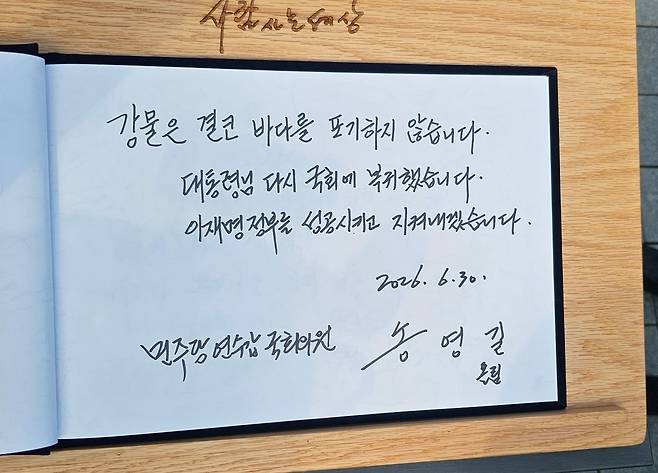 사람사는세상
강물은 결코 바다를 포기하지 않습니다.
대통령님 다시 국회에 복귀했습니다.
이재명정부를 성공시키고 지켜내겠습니다.
2026. 6.30.
민주당 연수갑 국회의원 송영길
올림